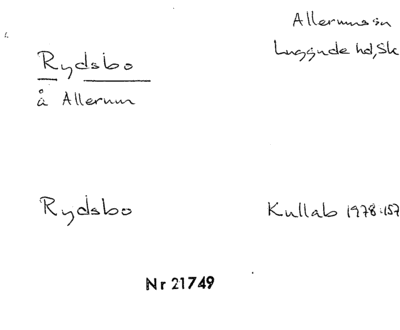 Allerums sn
Luggude hd, Sk
Rydsbo
å Allerum
Rydsbo
Kullab 1978:157
Nr 21749